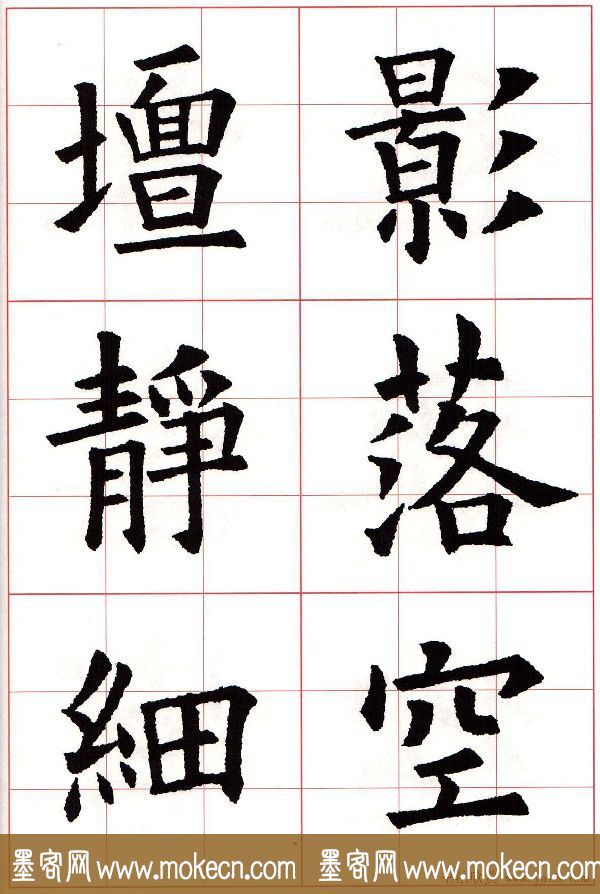 影落空
壇靜細
墨客网 www.mokecn.com 墨客网 www.mokecn.com